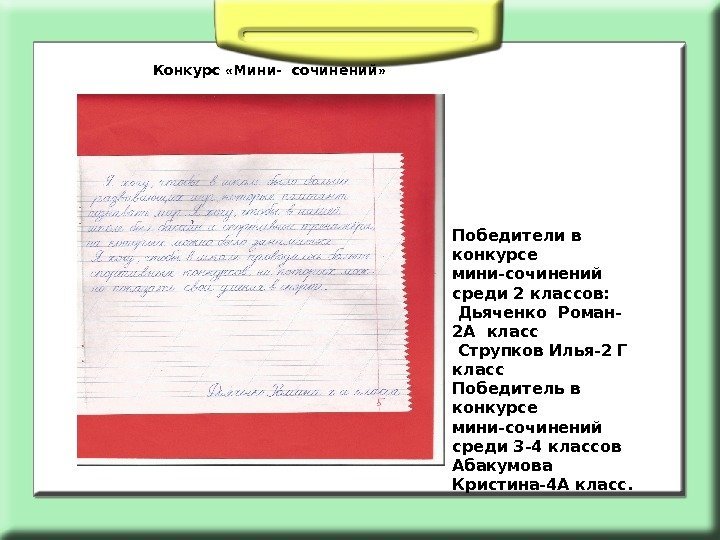 Конкурс «Мини- сочинений»
Я хочу, чтобы в школе было больше
развивающих игр, которые помогают
познавать мир. Я хочу, чтобы в нашей
школе был бассейн и спортивные тренажёры,
на которых можно было заниматься.
Я хочу, чтобы в школе проводили больше
спортивных конкурсов, на которых мож-
но показать свои умения в спорте.
Дьяченко Роман 2 А класса
Победители в
конкурсе
мини-сочинений
среди 2 классов:
Дьяченко Роман-
2А класс
Струпков Илья-2 Г
класс
Победитель в
конкурсе
мини-сочинений
среди 3-4 классов
Абакумова
Кристина-4А класс.